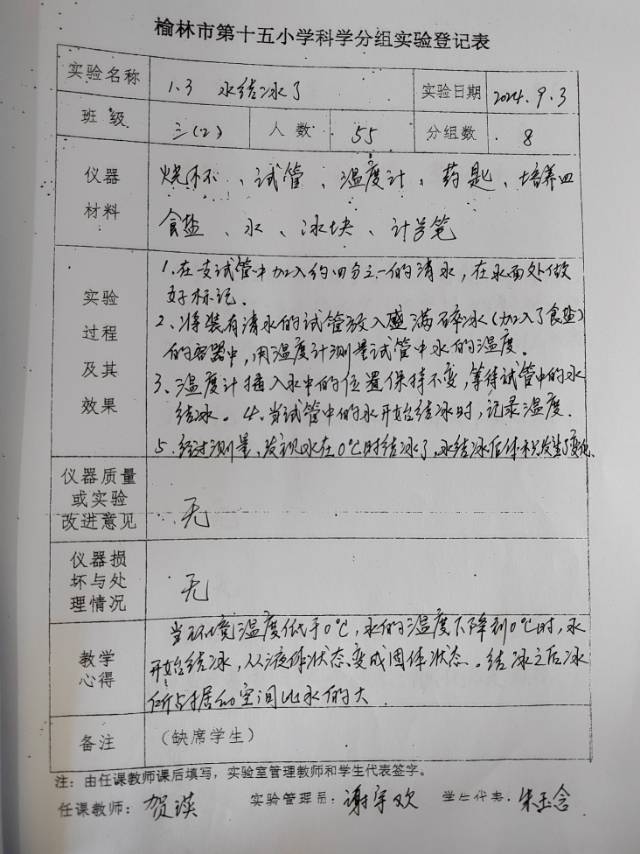 榆林市第十五小学科学分组实验登记表
实验名称 1.3 水结冰了 实验日期 2024.9.3
班级 三(2) 人数 55 分组数 8
仪器材料 烧杯、试管、温度计、药匙、培养皿
食盐、水、冰块、记号笔
实验过程及其效果 1.在支试管中加入约四分之一的清水,在水面处做
好标记.
2.将装有清水的试管放入盛满碎冰(加入了食盐)
的容器中,用温度计测量试管中水的温度.
3.温度计插入水中的位置保持不变,等待试管中的水
结冰。4.当试管中的水开始结冰时,记录温度.
5.经过测量、发现水在0℃时结冰了,水结冰后体积发生了变化.
仪器质量或实验改进意见 无
仪器损坏与处理情况 无
教学心得 当环境温度低于0℃,水的温度下降到0℃时,水
开始结冰,从液体状态变成固体状态。结冰之后冰
所占据的空间比水的大.
备注 (缺席学生)
注:由任课教师课后填写,实验室管理教师和学生代表签字。
任课教师:贺瑛 实验管理员:谢宇欢 学生代表:朱玉念